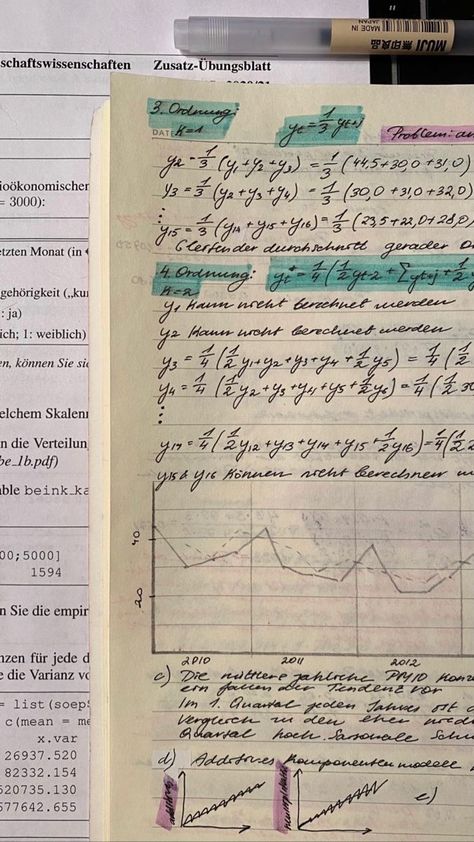 MUJI 無印良品
MADE IN JAPAN
schaftswissenschaften Zusatz-Übungsblatt
ioökonomischen
= 3000):
etzten Monat (in
gehörigkeit („kur
: ja)
ich; 1: weiblich)
en, können Sie sic
elchem Skalenn
n die Verteilun
be_1b.pdf)
able beink_ka
00;5000]
1594
n Sie die empir
nzen für jede d
e die Varianz vo
= list(soepS
c(mean = me
x.var
26937.520
82332.154
520735.130
577642.655
3. Ordnung:
DATE
k=1
yt = 1/3 yt+j
Problem: au
y2 = 1/3 (y1+y2+y3) = 1/3 (44,5+30,0+31,0)
y3 = 1/3 (y2+y3+y4) = 1/3 (30,0+31,0+32,0)
⋮
y15 = 1/3 (y14+y15+y16) = 1/3 (23,5+22,0+28,0)
Gleitender durchschnitt gerader O
4. Ordnung: yt* = 1/4 (1/2 yt-2 + Σ yt+j + 1/2 y
k=2
y1 kann nicht berechnet werden
y2 kann nicht berechnet werden
y3 = 1/4 (1/2 y1+y2+y3+y4+1/2 y5) = 1/4 (1/2
y4 = 1/4 (1/2 y2+y3+y4+y5+1/2 y6) = 1/4 (1/2 30
⋮
y14 = 1/4 (1/2 y12+y13+y14+y15+1/2 y16) = 1/4 (1/2
y15 & y16 können nicht berechnen w
40
20
2010 2011 2012
c) Die mittlere jährliche PM10 Konz
ein fallen der Tendenz vor
Im 1. Quartal jeden Jahres ist d
Vergleich zu den eher nied
Quartal hoch. Saisonale Schw
d) Additives Komponentenmodell
e)